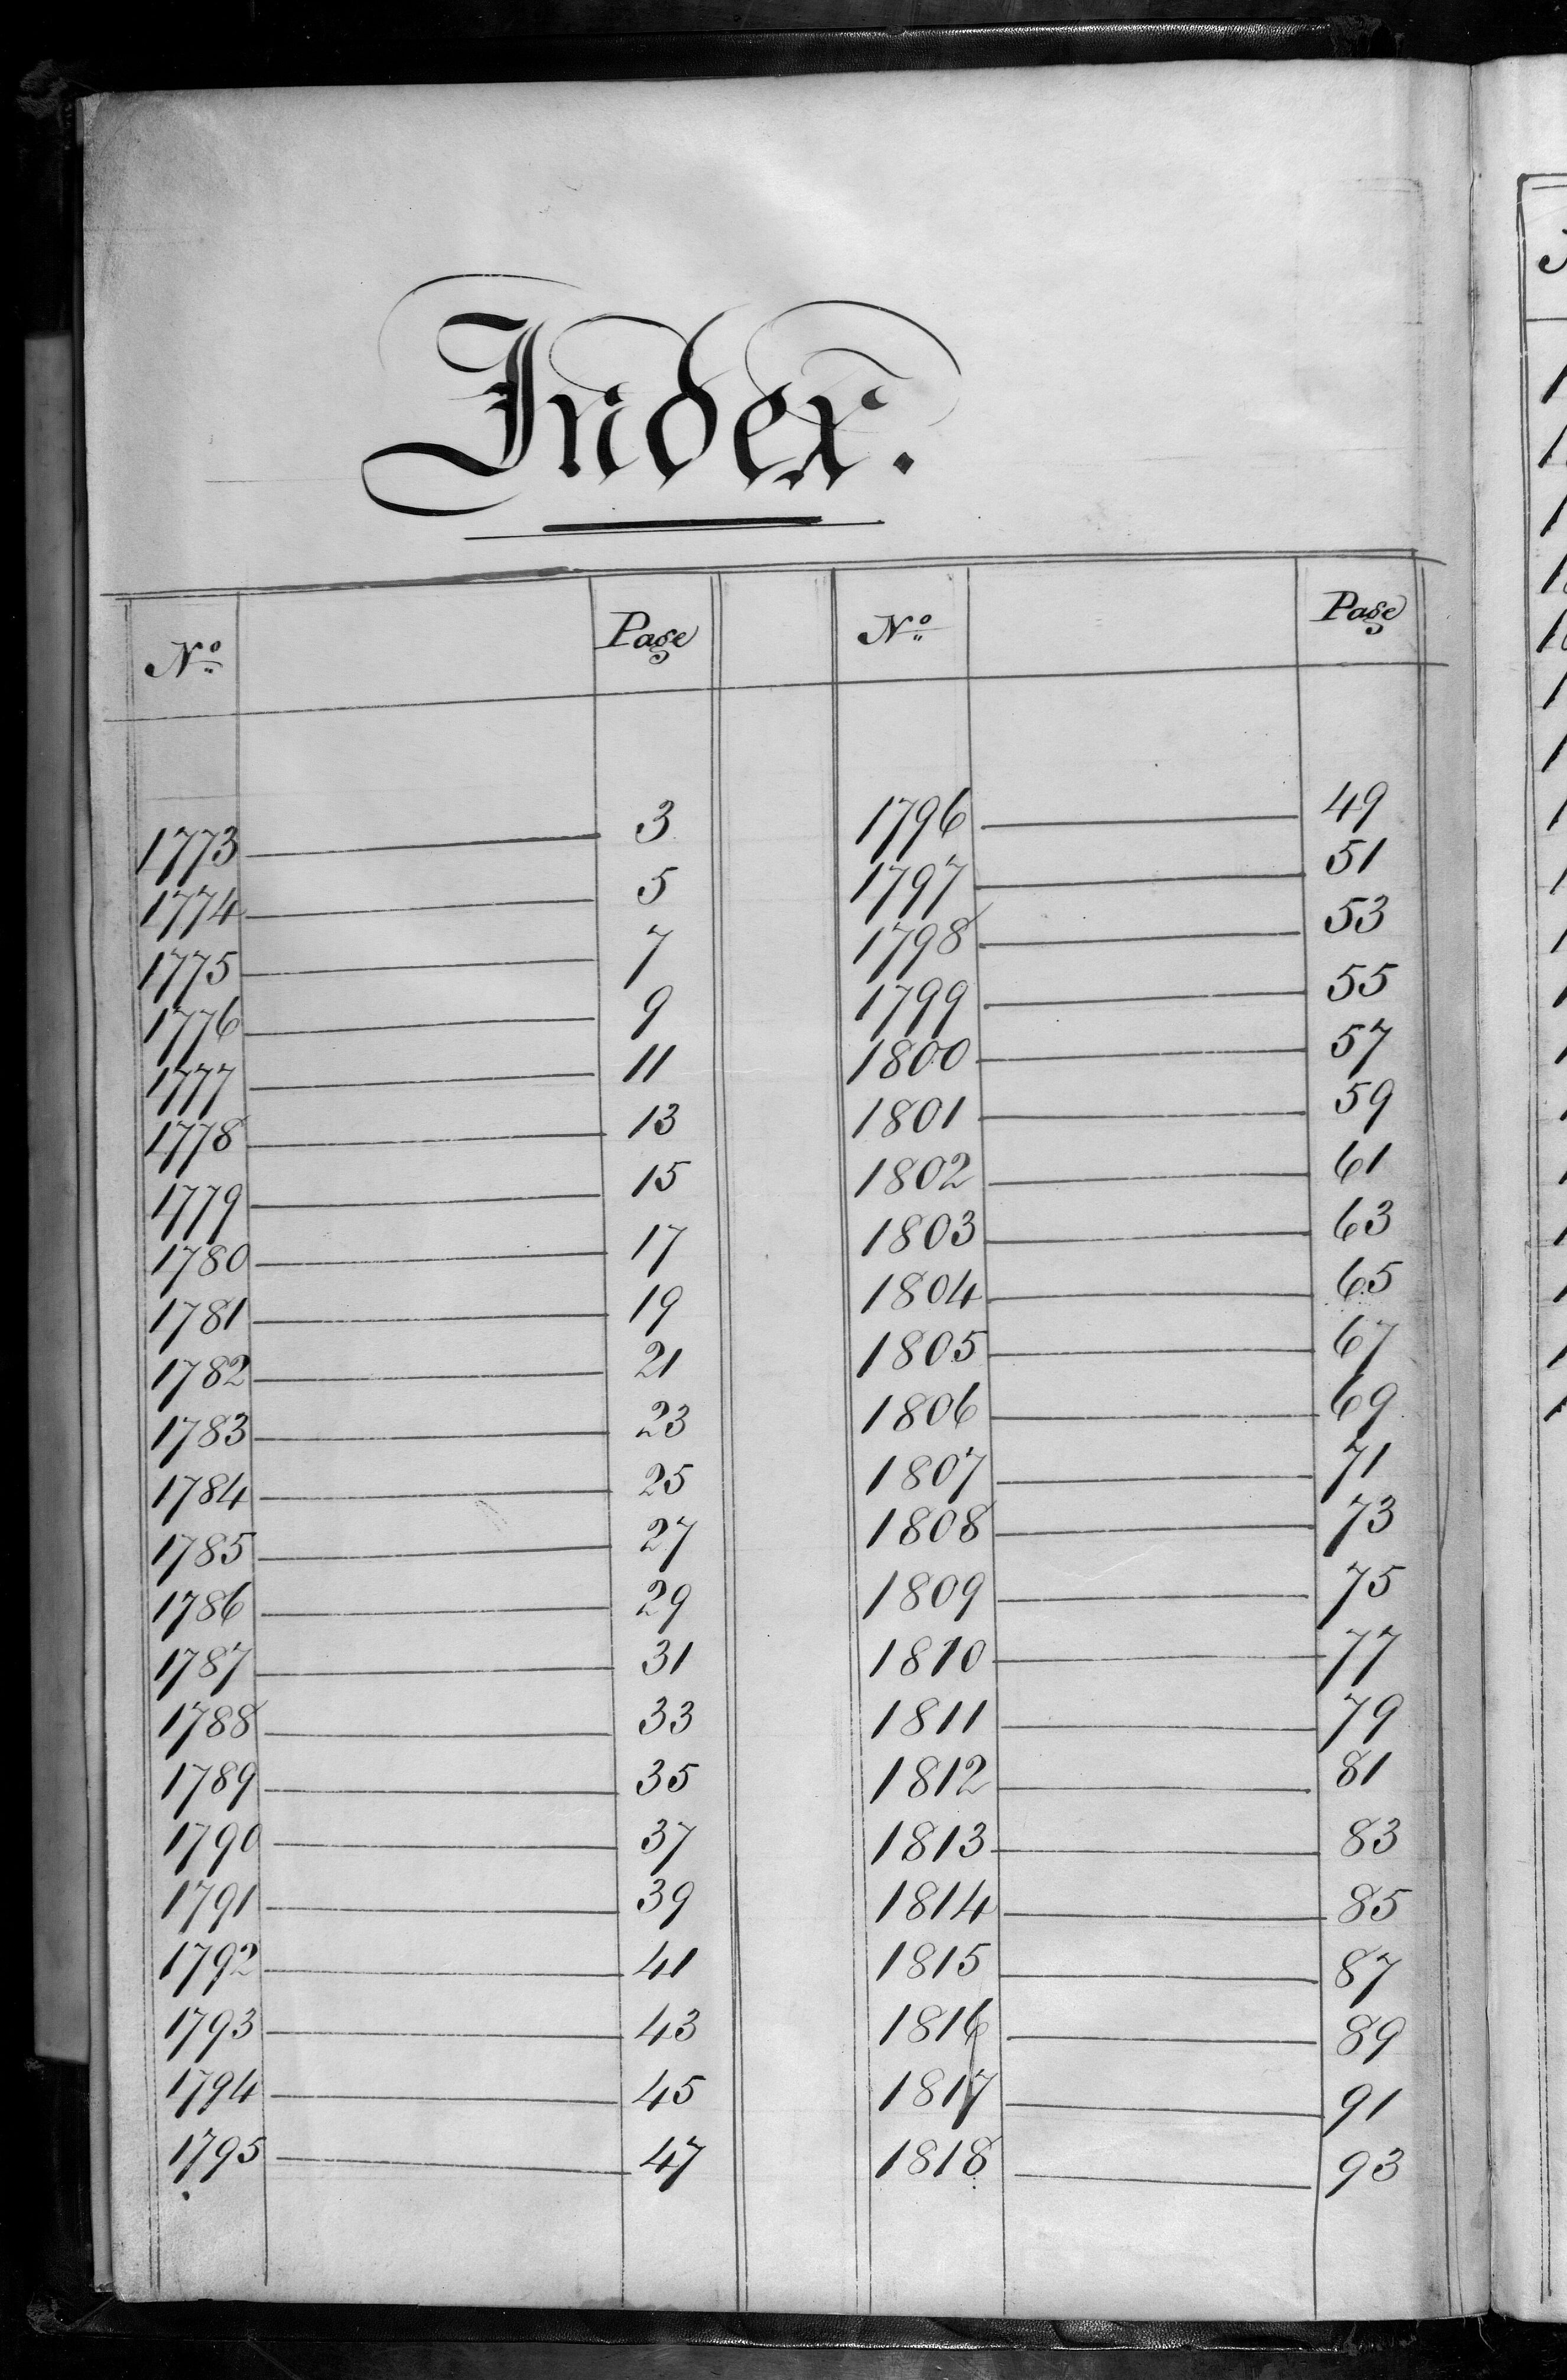 Index.
No Page No Page
1773 3 1796 49
1774 5 1797 51
1775 7 1798 53
1776 9 1799 55
1777 11 1800 57
1778 13 1801 59
1779 15 1802 61
1780 17 1803 63
1781 19 1804 65
1782 21 1805 67
1783 23 1806 69
1784 25 1807 71
1785 27 1808 73
1786 29 1809 75
1787 31 1810 77
1788 33 1811 79
1789 35 1812 81
1790 37 1813 83
1791 39 1814 85
1792 41 1815 87
1793 43 1816 89
1794 45 1817 91
1795 47 1818 93